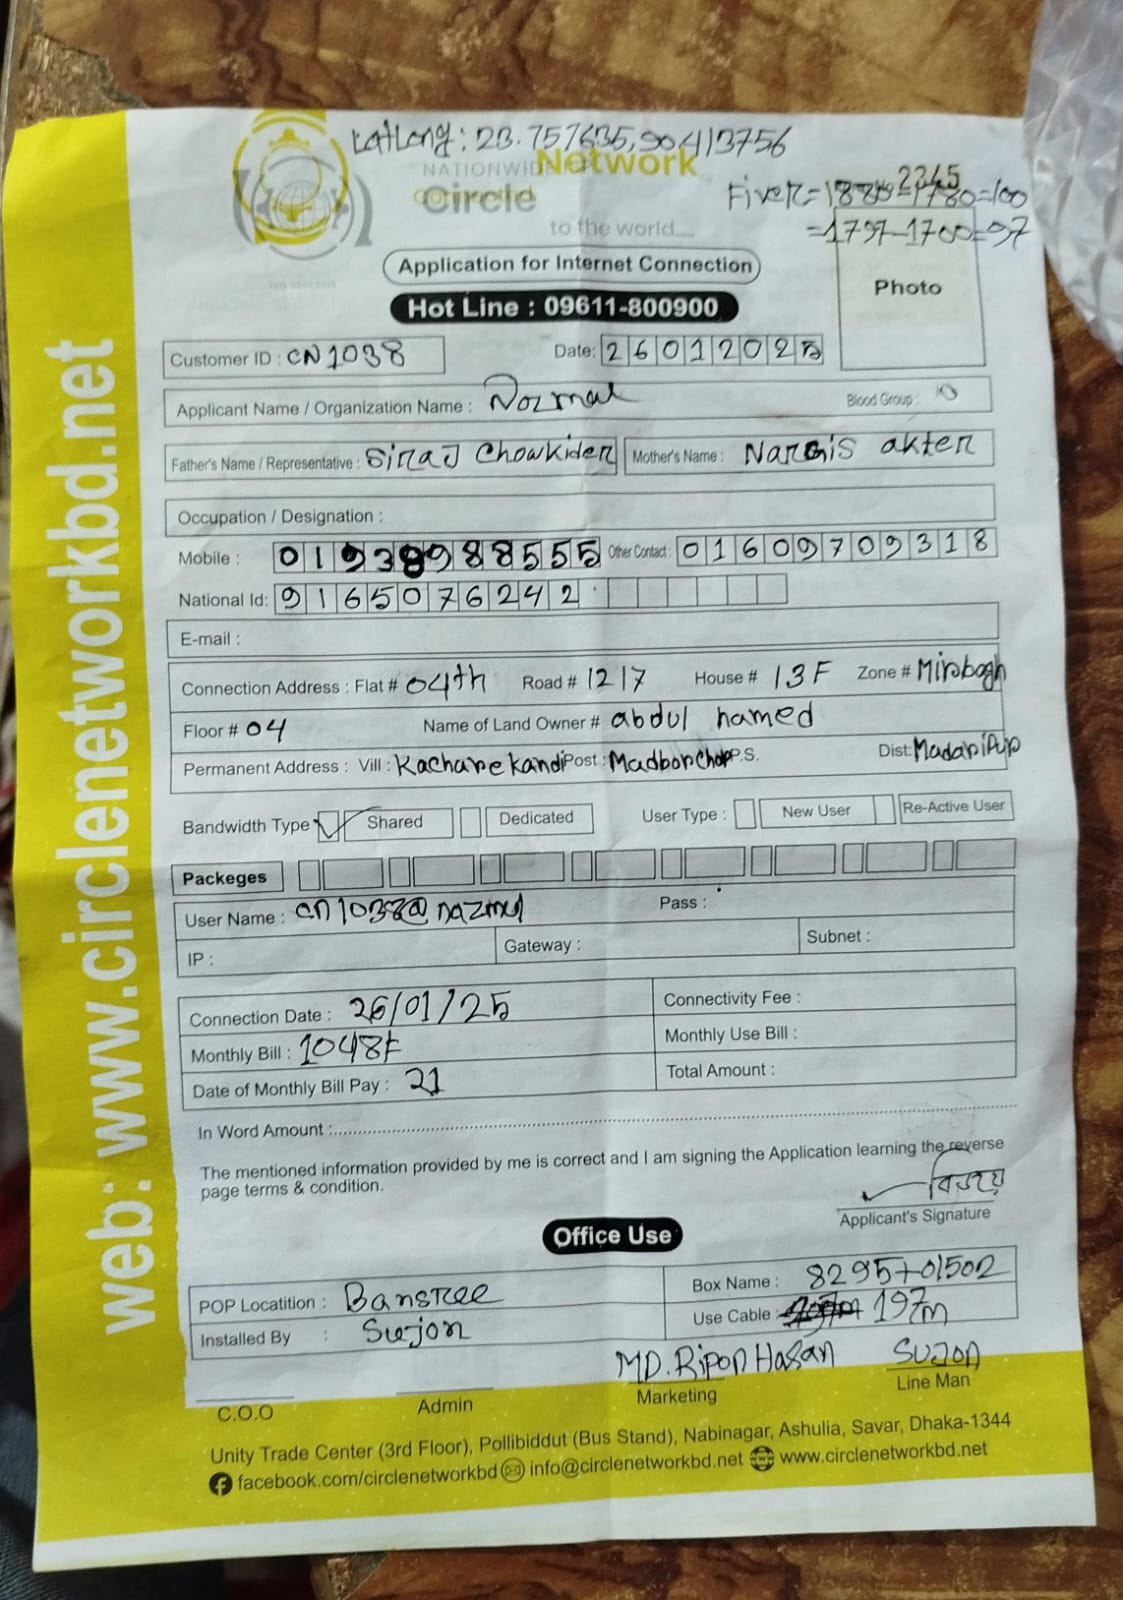 LatLong: 23.757635,90.413756
NATIONWIDE Network
Circle
to the world....
2345
Fiver=1880-1780=100
=1797-1700=97
Application for Internet Connection
Photo
Hot Line : 09611-800900
Customer ID : CN1038 Date: 26012025
Applicant Name / Organization Name : Nozmul Blood Group :
Father's Name / Representative : Siraj Chowkider Mother's Name : Nargis akter
Occupation / Designation :
Mobile : 01938988555 Other Contact : 01609709318
National Id: 9165076242
E-mail :
Connection Address : Flat # 04th Road # 1217 House # 13F Zone # Mirbagh
Floor # 04 Name of Land Owner # abdul hamed
Permanent Address : Vill : Kacharekandi Post : MadborChor P.S. Dist: Madaripup
Bandwidth Type Shared Dedicated User Type : New User Re-Active User
Packeges
User Name : cn1038@nazmul Pass :
IP : Gateway : Subnet :
Connection Date : 26/01/25 Connectivity Fee :
Monthly Bill : 1048৳ Monthly Use Bill :
Date of Monthly Bill Pay : 21 Total Amount :
In Word Amount :
The mentioned information provided by me is correct and I am signing the Application learning the reverse
page terms & condition.
Applicant's Signature
Office Use
POP Locatition : Bansree Box Name : 8295+01502
Installed By : Sujon Use Cable : 197m
MD. Ripon Hasan Sujon
C.O.O Admin Marketing Line Man
Unity Trade Center (3rd Floor), Pollibiddut (Bus Stand), Nabinagar, Ashulia, Savar, Dhaka-1344
facebook.com/circlenetworkbd info@circlenetworkbd.net www.circlenetworkbd.net
web: www.circlenetworkbd.net